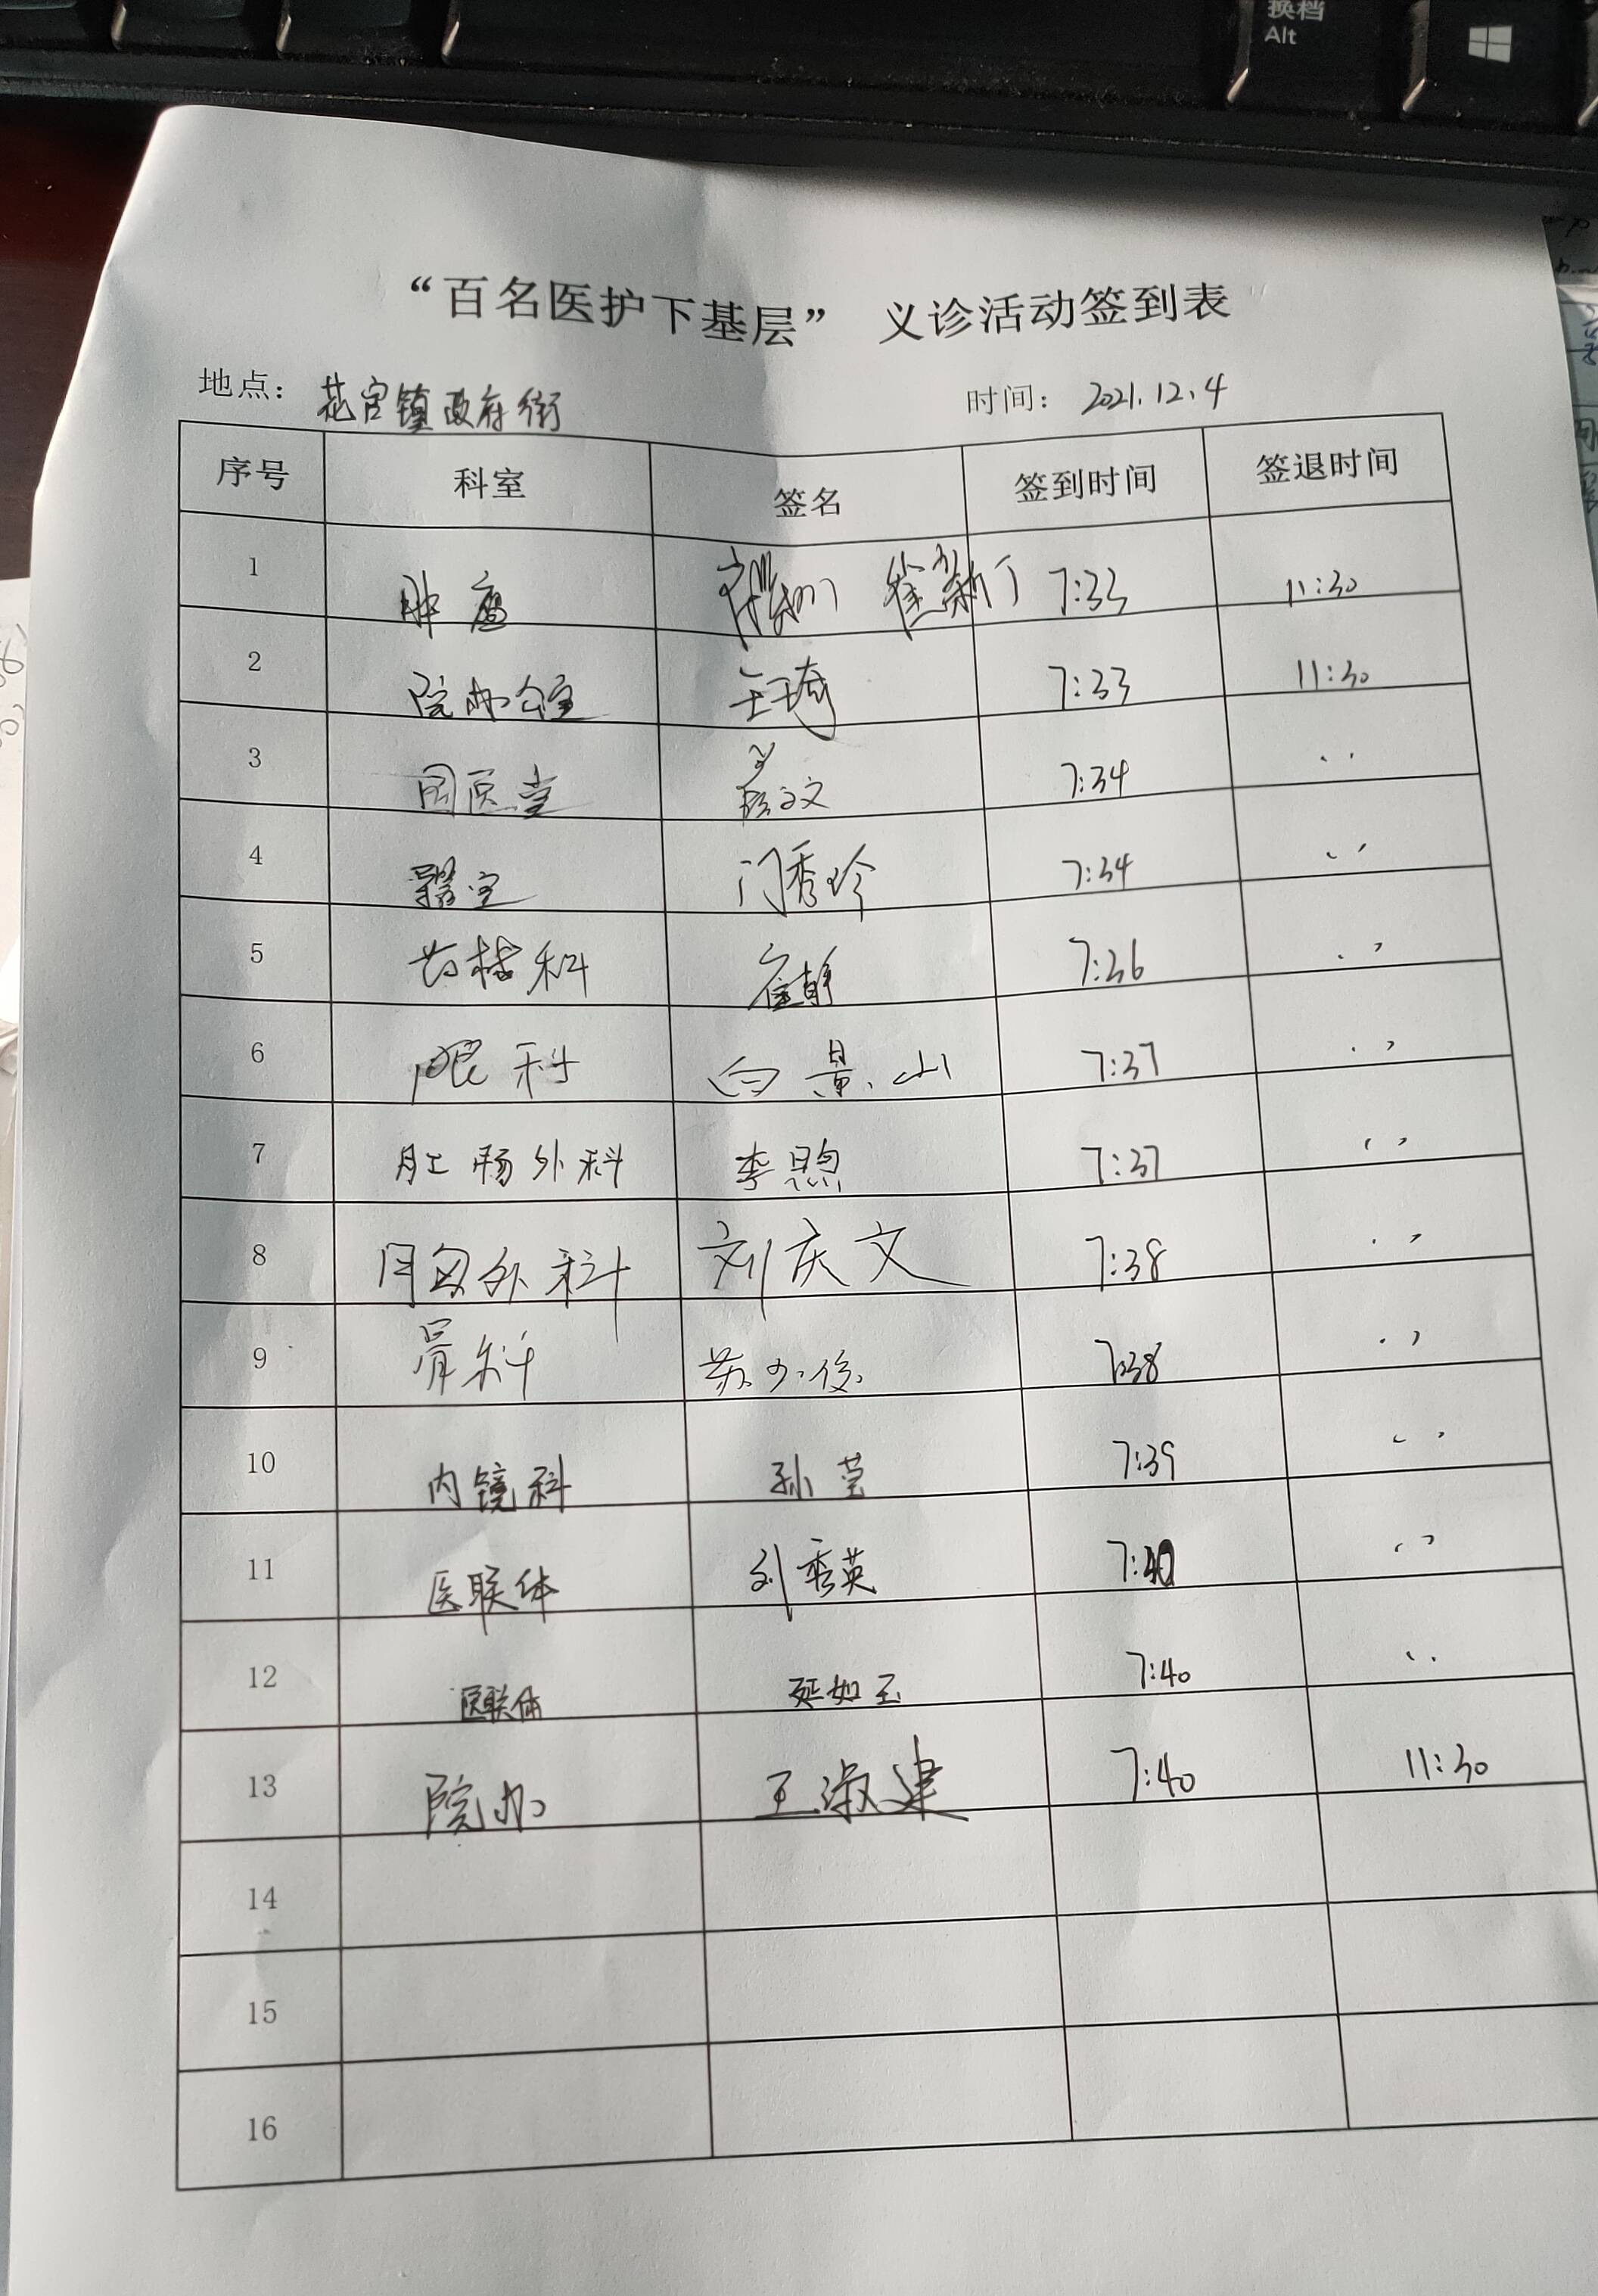 换档
Alt
“百名医护下基层” 义诊活动签到表
地点： 花官镇政府街 时间： 2021.12.4
序号 科室 签名 签到时间 签退时间
1 肿瘤 7:33 11:30
2 院办公室 王琦 7:33 11:30
3 国医堂 7:34 ''
4 门秀珍 7:34 ''
5 科 崔静 7:36 ''
6 眼科 白景山 7:37 ''
7 肛肠外科 李煦 7:37 ''
8 胸外科 刘庆文 7:38 ''
9 骨科 苏少俊 7:38 ''
10 内镜科 孙莹 7:39 ''
11 医联体 刘秀英 7:40 ''
12 医联体 延如玉 7:40 ''
13 院办 王淑建 7:40 11:30
14
15
16